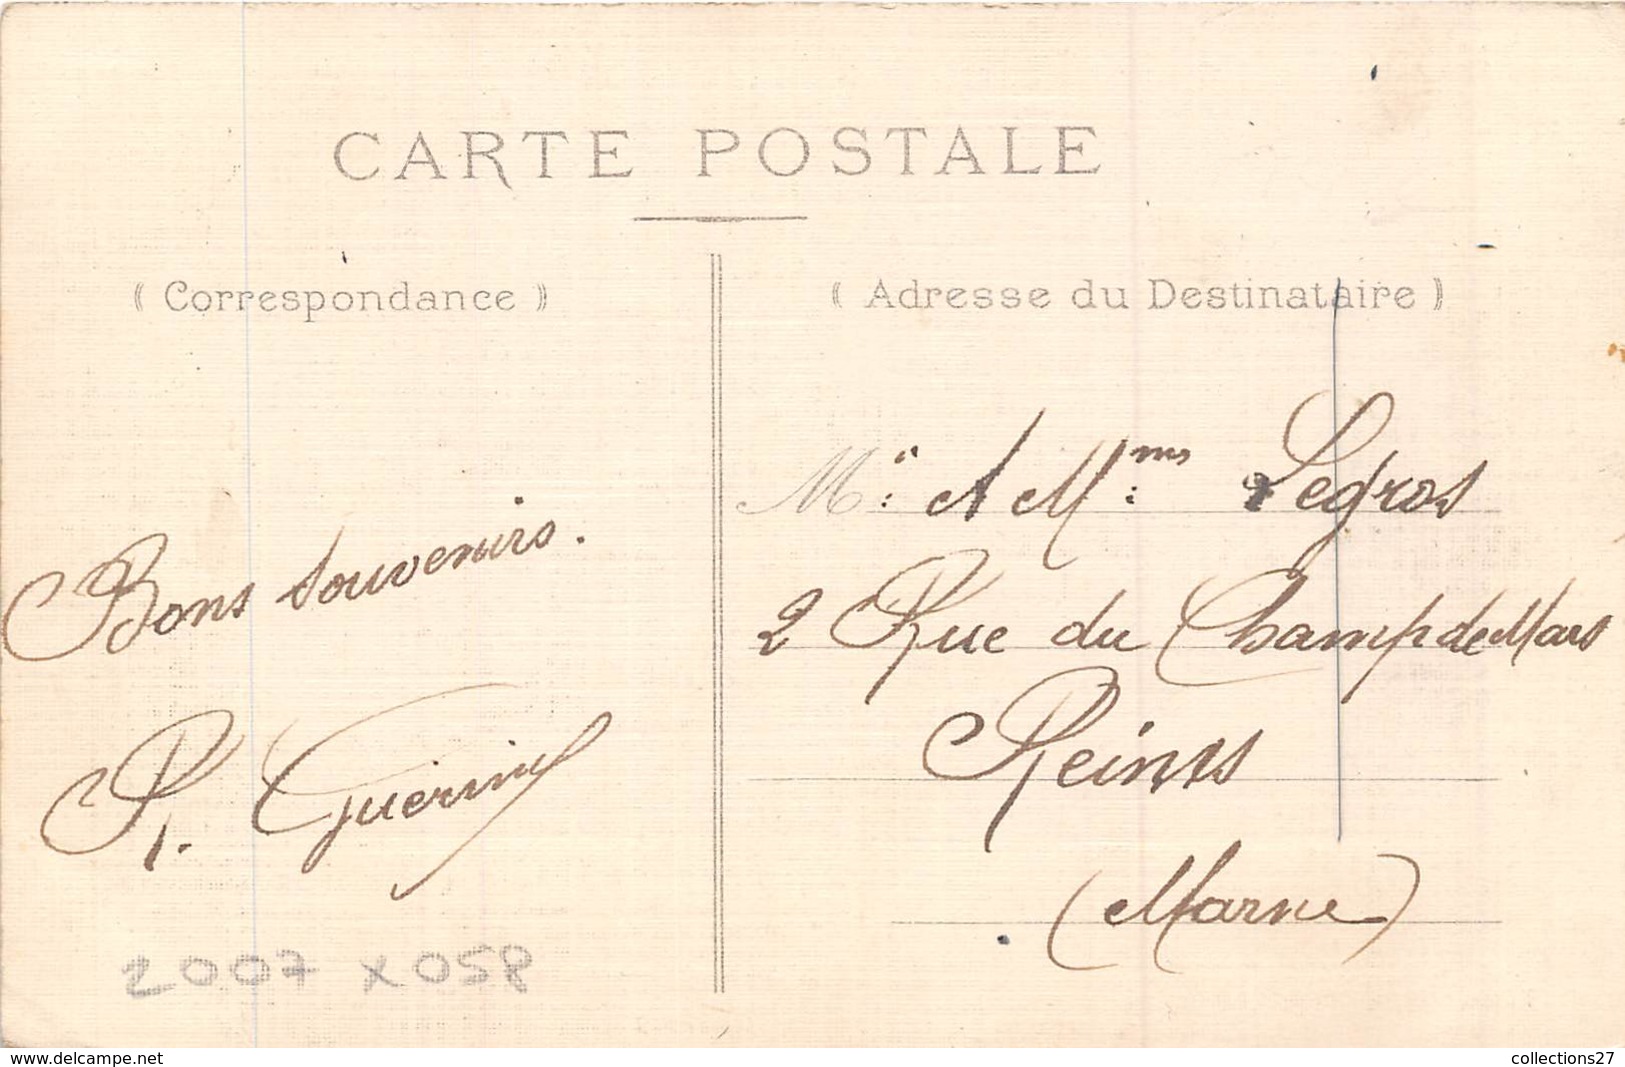 CARTE POSTALE
( Correspondance )
( Adresse du Destinataire )
Bons souvenirs.
2007 x 058
M: et Mme: Legros
2 Rue du Champ de Mars
Reims
(Marne)
www.delcampe.net
collections27